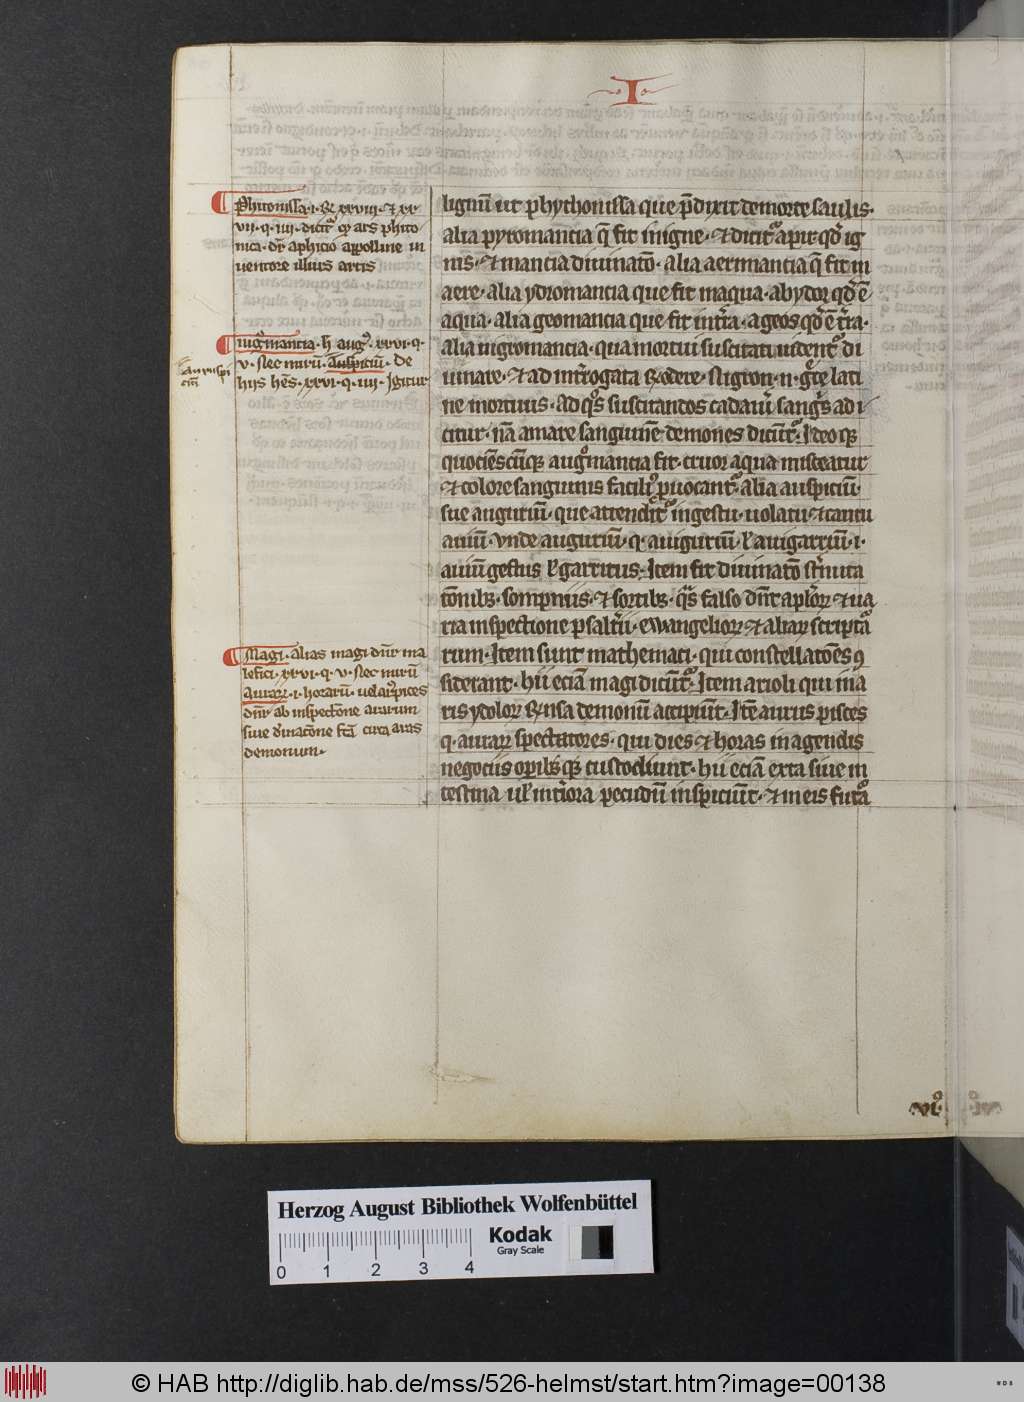 I
Phitonissa · i · R xxviii · et xx
vii · q · iiii · dicitˀ qͥ ars phito
nica · dr̄ aphicio appolline in
uentore illius artis
nigͦmancia · h augˀ · xxvi · q ·
v · nec mirū · Auspiciū · de
hiis hēs · xxvi · q · iiii · Igitur
Auruspi
ciū
Magi · alias magi dn̄r ma
lefici · xxvi · q · v · nec mirū
dn̄r ab inspectōne ararum
siue diuinacōne fcā circa aras
demonium ·
ligniū ut phythonissa que p̄dixit de morte saulis ·
alia pyromancia q̄ fit in igne · et dicitˀ a pir qd̄ ig
nis · et mancia diuinatō · alia aermancia q̄ fit in
aere · alia ydromancia que fit in aqua · ab ydor qd̄ ē
aqua · alia geomancia que fit in tr̄ra · a geos qd̄ ē tr̄ra ·
alia nigromancia · qua mortui suscitati uidentˀ di
uinare · et ad int̄rogata rn̄dere · Nigron · n · gͨe lati
ne mortuus · ad qͦs suscitandos cadauiͥ sangͥs adi
citur · nā amare sanguinē demones dicūtˀ · Ideoqꝫ
quociēscūqꝫ nigͦmancia fit · cruor aqua misceatur
et colore sanguinis faciliˀ ꝓuocantˀ · alia auspiciū ·
siue auguriū · que attenditˀ in gestu · uolatu · et cantu
auiū · vnde auguriū · qͥ auiguriū · uͥ auigarriū · i ·
auiū gestus uͥ garritus · Item fit diuinatō st̄nuta
tōnibꝫ · sompniis · et sortibꝫ · qͣs falso dn̄t apl̄oꝝ · et ua
ria inspectione psalt̄ii · ewangelioꝝ · et aliaꝝ sc̄ptaˀ
rum · Item sunt mathemati · qui constellatōes ꝯ
siderant · hii eciā magi dicūtˀ · Item arioli qui in a
ris ydoloꝝ rn̄sa demonū accipiūt · Itē aurus pisces
q · auraꝝ spectatores · qui dies et horas in agendis
negociis oꝑibꝫqꝫ custodiunt · hii eciā exta siue in
testina ul̄ int̄iora pecudū inspiciūt · et in eis futˀa
·vi·
Herzog August Bibliothek Wolfenbüttel
Kodak
Gray Scale
0 1 2 3 4
© HAB http://diglib.hab.de/mss/526-helmst/start.htm?image=00138